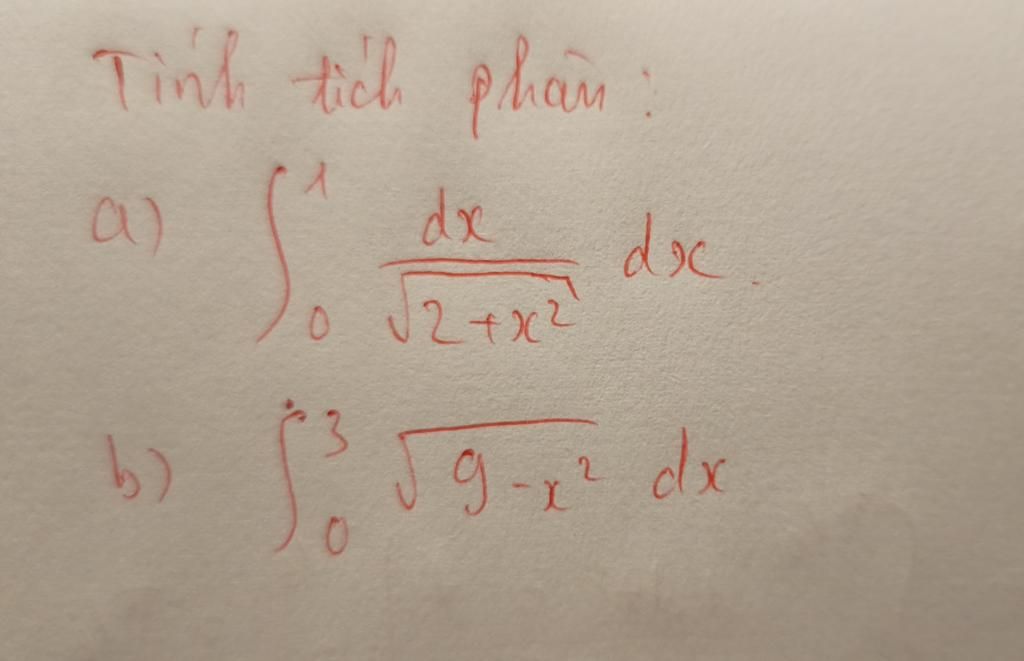 Tính tích phân:
a) ∫₀¹ dx/√(2+x²) dx.
b) ∫₀³ √(9-x²) dx